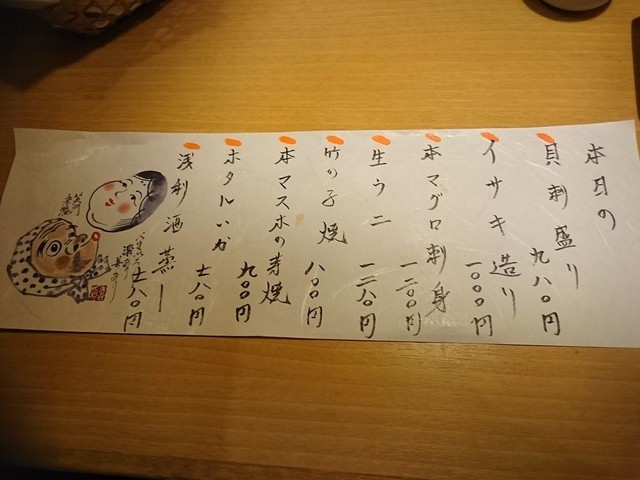 本日の
貝刺盛り 九八〇円
イサキ造り 一〇〇〇円
本マグロ刺身 一二〇〇円
生ウニ 一二八〇円
竹の子焼 八〇〇円
本マスホの芽焼 九〇〇円
ホタルいか 七八〇円
浅利酒蒸し 七八〇円